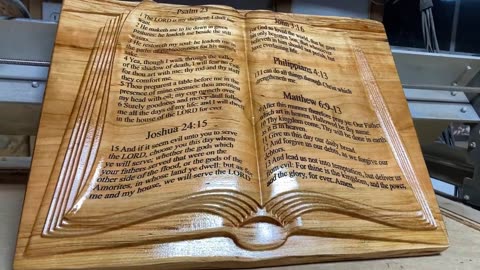 Psalm 23
1 The LORD is my shepherd; I shall
2 He maketh me to lie down in green
pastures: he leadeth me beside the still
3 He restoreth my soul: he leadeth me
paths of righteousness for his
4 Yea, though I walk through the valley
of the shadow of death, I will fear no evil:
for thou art with me; thy rod and thy staff
they comfort me.
5 Thou preparest a table before me in the
presence of mine enemies: thou anointest
my head with oil; my cup runneth over.
6 Surely goodness and mercy shall follow
me all the days of my life: and I will dwell
in the house of the LORD for ever.
Joshua 24:15
15 And if it seem evil unto you to serve
the LORD, choose you this day whom
ye will serve; whether the gods which
your fathers served that were on the
other side of the flood, or the gods of the
Amorites, in whose land ye dwell: but as for
me and my house, we will serve the LORD.
John 3:16
For God so loved the world, that he gave
his only begotten Son, that whosoever
believeth in him should not perish, but
have everlasting life.
Philippians 4:13
13 I can do all things through Christ which
Matthew 6:9-13
9 After this manner therefore pray ye: Our Father
which art in heaven, Hallowed be thy name.
10 Thy kingdom come. Thy will be done in
earth, as it is in heaven.
11 Give us this day our daily bread.
12 And forgive us our debts, as we forgive our
debtors.
13 And lead us not into temptation, but deliver us
from evil: For thine is the kingdom, and the power,
and the glory, for ever. Amen.